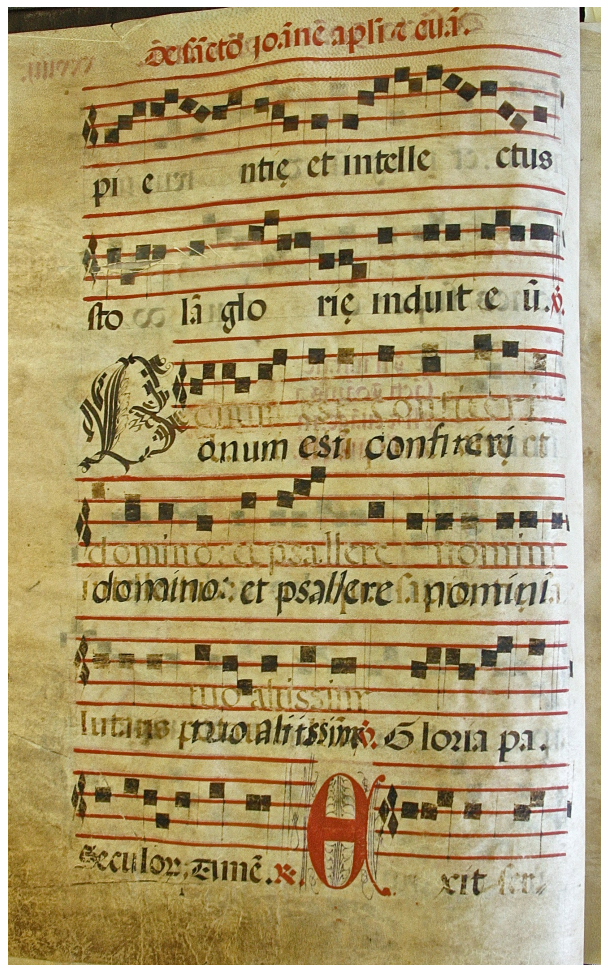 De sācto Joāne apli ⁊ euā.
pi e ntię et intelle ctus
sto lā glo rię induit e ū. ℣.
Bonum est confiteri
domino: et psallere nomini
tuo altissim̄ ℣. Gloria pa.
Seculor. Amē. ℟. E xit